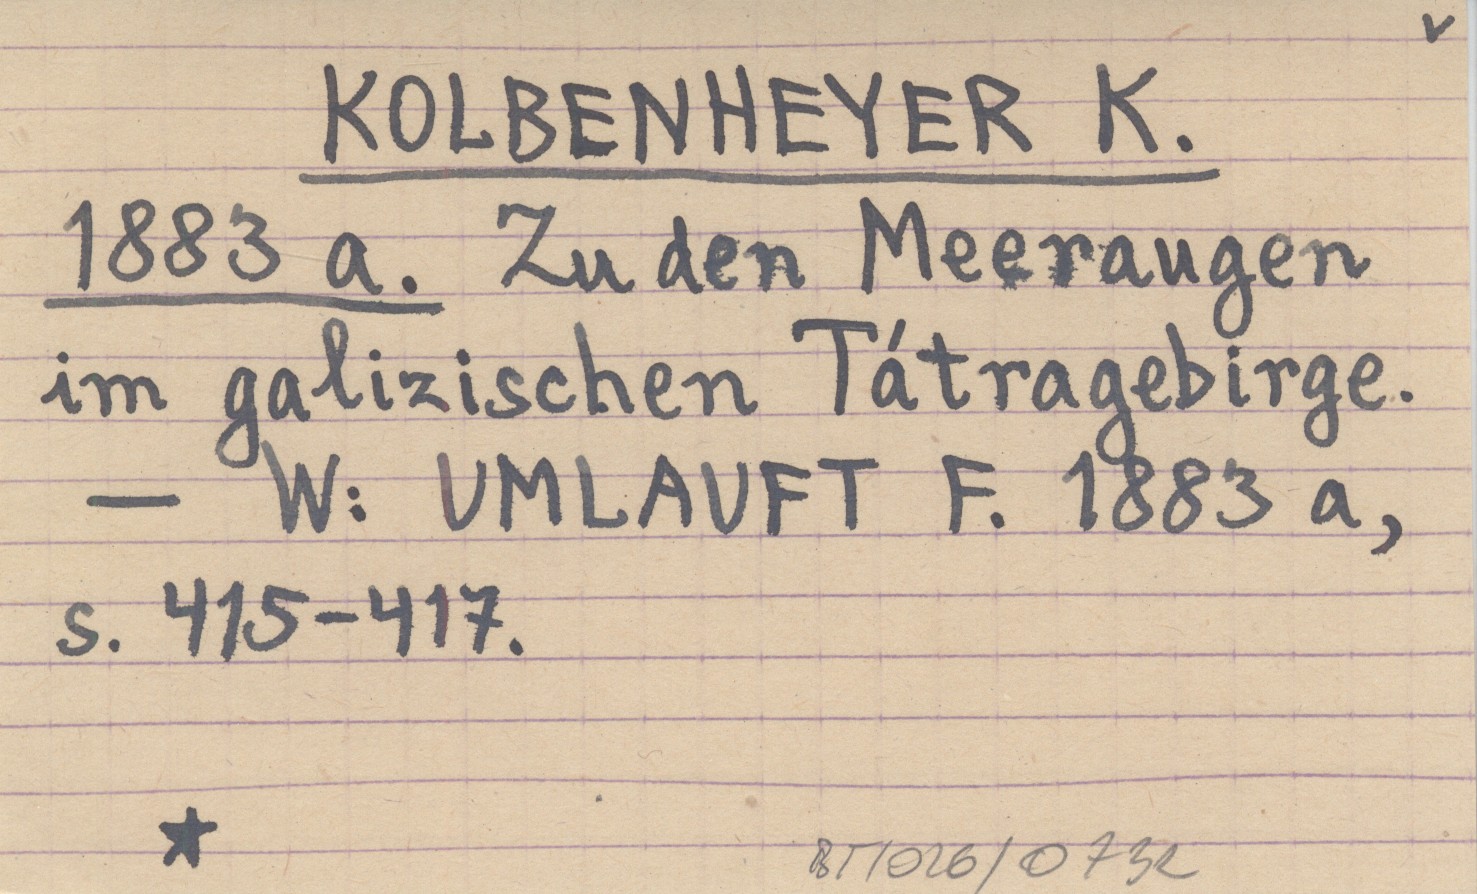 v
KOLBENHEYER K.
1883 a. Zu den Meeraugen
im galizischen Tátragebirge.
— W: UMLAUFT F. 1883 a,
s. 415-417.
★
BT/026/0732